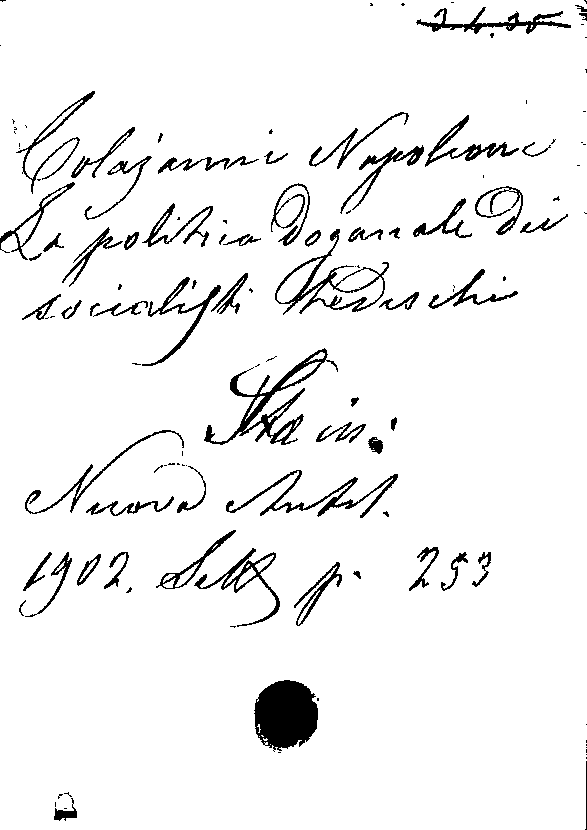 3.4.35
Colajanni Napoleone
La politica doganale dei
socialisti tedeschi
Sta in:
Nuova Antol.
1902. Sett. p. 253